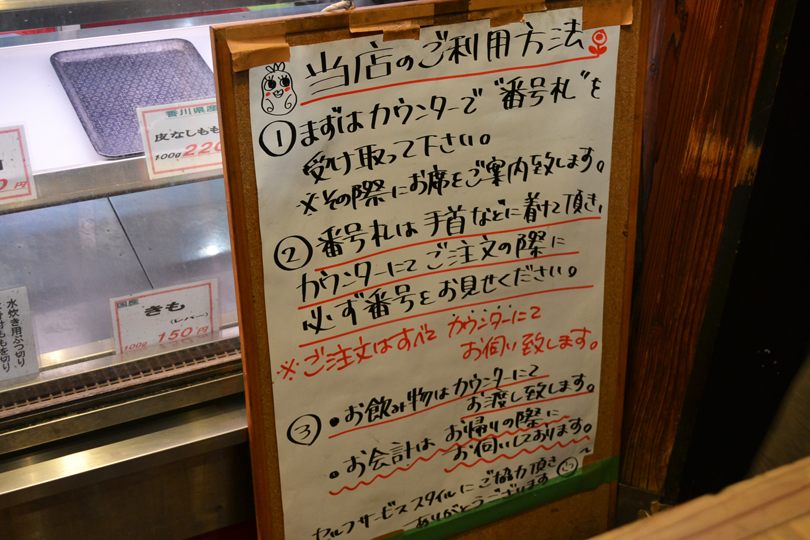 当店のご利用方法
①まずはカウンターで"番号札"を
受け取って下さい。
※その際にお席をご案内致します。
②番号札は手首などに着けて頂き、
カウンターにてご注文の際に
必ず番号をお見せください。
※ご注文はすべてカウンターにて
お伺い致します。
③・お飲み物はカウンターにて
お渡し致します。
・お会計はお帰りの際に
お伺いしております。
セルフサービススタイルにご協力頂き
ありがとうございます
香川県産
皮なしもも
100g 220
円
国産
きも
(レバー)
100g 150円
水炊き用ぶつ切り